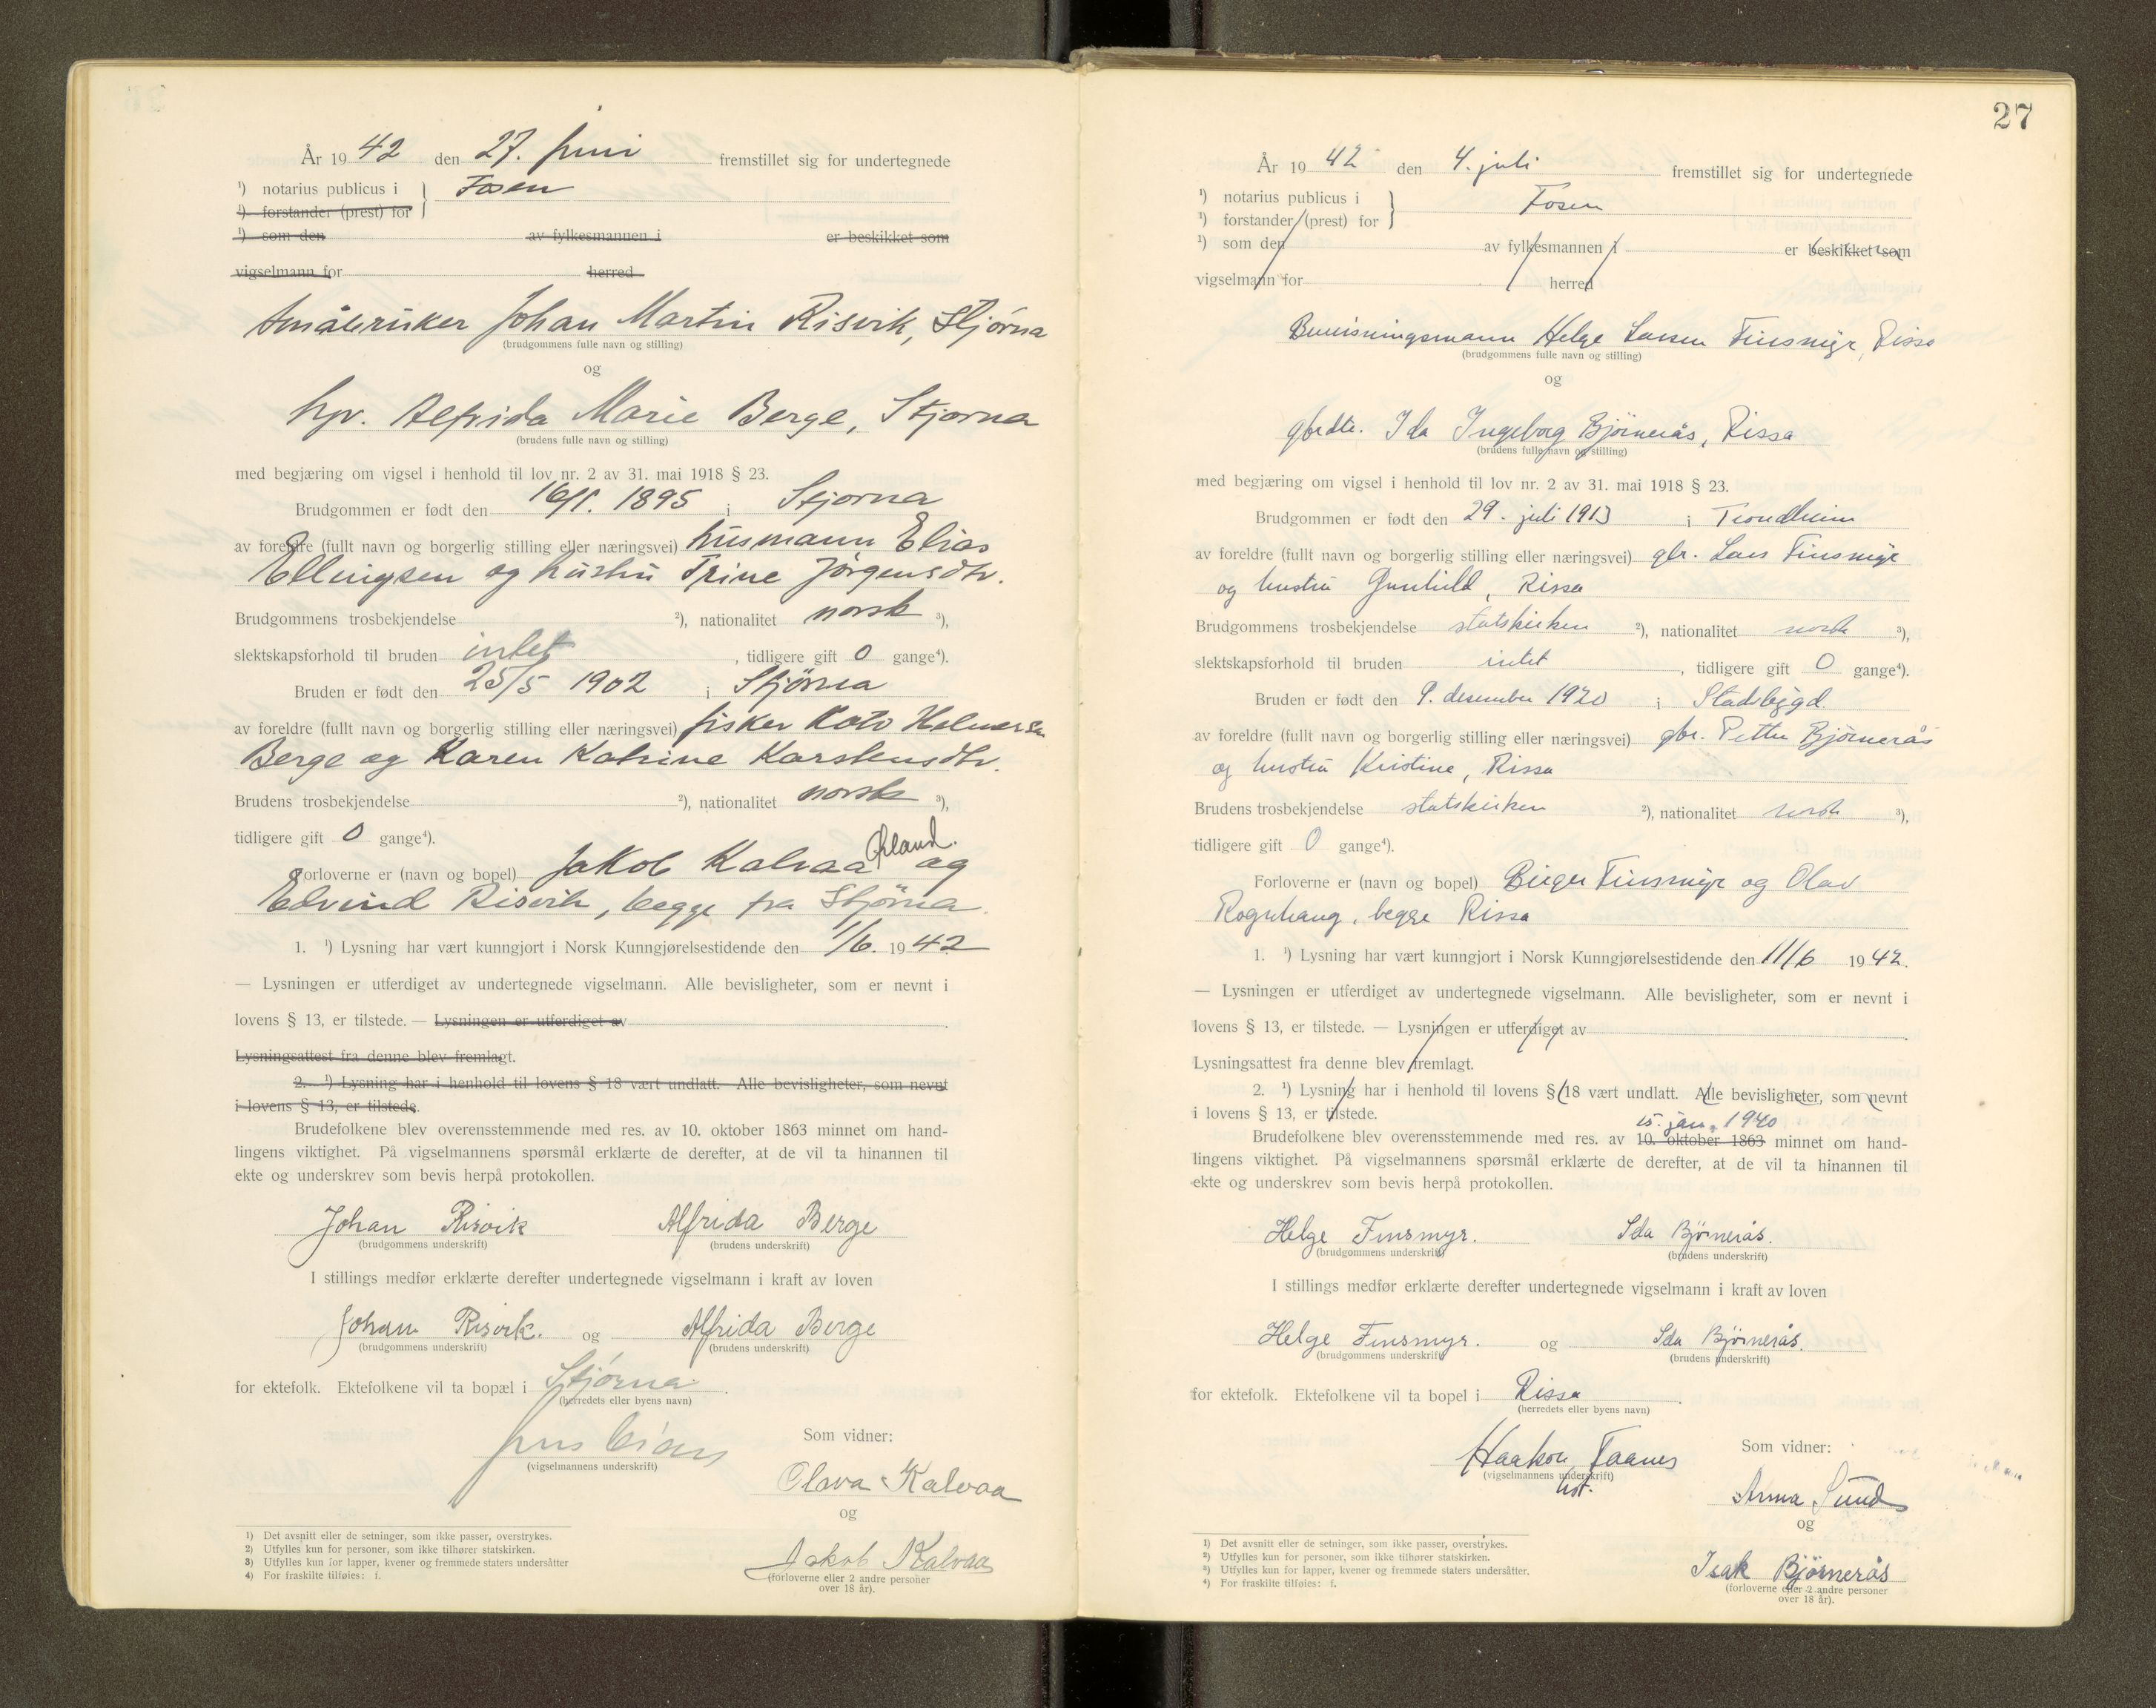 År 1942 den 27. juni fremstillet sig for undertegnede
¹) notarius publicus i } Fosen
¹) forstander (prest) for
¹) som den av fylkesmannen i er beskikket som
vigselmann for herred
Småbruker Johan Martin Risvik, Stjørna
(brudgommens fulle navn og stilling)
og
hpr. Alfrida Marie Berge, Stjørna
(brudens fulle navn og stilling)
med begjæring om vigsel i henhold til lov nr. 2 av 31. mai 1918 § 23.
Brudgommen er født den 1895 i Stjørna
av foreldre (fullt navn og borgerlig stilling eller næringsvei) husmann Elias
Ellingsen og hustru Trine Jørgensdtr.
Brudgommens trosbekjendelse ²), nationalitet norsk ³),
slektskapsforhold til bruden intet, tidligere gift 0 gange⁴).
Bruden er født den 25/5 1902 i Stjørna
av foreldre (fullt navn og borgerlig stilling eller næringsvei) fisker Helmersen
Berge og Karen Katrine Karstensdtr.
Brudens trosbekjendelse ²), nationalitet norsk ³),
tidligere gift 0 gange⁴).
Forloverne er (navn og bopel) Jakob Kalvaa Ørland. og
Edvind Risvik, begge fra Stjørna.
1. ¹) Lysning har vært kunngjort i Norsk Kunngjørelsestidende den 1/6. 1942
— Lysningen er utferdiget av undertegnede vigselmann. Alle bevisligheter, som er nevnt i
lovens § 13, er tilstede. — Lysningen er utferdiget av .
Lysningsattest fra denne blev fremlagt.
2. ¹) Lysning har i henhold til lovens § 18 vært undlatt. Alle bevisligheter, som nevnt
i lovens § 13, er tilstede.
Brudefolkene blev overensstemmende med res. av 10. oktober 1863 minnet om hand-
lingens viktighet. På vigselmannens spørsmål erklærte de derefter, at de vil ta hinannen til
ekte og underskrev som bevis herpå protokollen.
Johan Risvik Alfrida Berge
(brudgommens underskrift) (brudens underskrift)
I stillings medfør erklærte derefter undertegnede vigselmann i kraft av loven
Johan Risvik. og Alfrida Berge
(brudgommens underskrift) (brudens underskrift)
for ektefolk. Ektefolkene vil ta bopæl i Stjørna.
(herredets eller byens navn)
Som vidner:
(vigselmannens underskrift)
Olava Kalvaa
og
Jakob Kalvaa
(forloverne eller 2 andre personer
over 18 år).
1) Det avsnitt eller de setninger, som ikke passer, overstrykes.
2) Utfylles kun for personer, som ikke tilhører statskirken.
3) Utfylles kun for lapper, kvener og fremmede staters undersåtter
4) For fraskilte tilføies: f.
27
År 1942 den 4. juli fremstillet sig for undertegnede
¹) notarius publicus i } Fosen
¹) forstander (prest) for
¹) som den av fylkesmannen i er beskikket som
vigselmann for herred
Bureisningsmann Helge Larsen Finsmyr, Rissa
(brudgommens fulle navn og stilling)
og
gbrdtr. Ida Ingeborg Bjørnerås, Rissa
(brudens fulle navn og stilling)
med begjæring om vigsel i henhold til lov nr. 2 av 31. mai 1918 § 23.
Brudgommen er født den 29. juli 1913 i Trondheim
av foreldre (fullt navn og borgerlig stilling eller næringsvei) gbr. Lars Finsmyr
og hustru Gunhild, Rissa
Brudgommens trosbekjendelse statskirken ²), nationalitet norsk ³),
slektskapsforhold til bruden intet, tidligere gift 0 gange⁴).
Bruden er født den 9. desember 1920 i Stadsbygd
av foreldre (fullt navn og borgerlig stilling eller næringsvei) gbr. Petter Bjørnerås
og hustru Kristine, Rissa
Brudens trosbekjendelse statskirken ²), nationalitet norsk ³),
tidligere gift 0 gange⁴).
Forloverne er (navn og bopel) Birger Finsmyr og Olav
Rognhaug, begge Rissa
1. ¹) Lysning har vært kunngjort i Norsk Kunngjørelsestidende den 11/6 1942.
— Lysningen er utferdiget av undertegnede vigselmann. Alle bevisligheter, som er nevnt i
lovens § 13, er tilstede. — Lysningen er utferdiget av .
Lysningsattest fra denne blev fremlagt.
2. ¹) Lysning har i henhold til lovens § 18 vært undlatt. Alle bevisligheter, som nevnt
i lovens § 13, er tilstede.
15. jan. 1940
Brudefolkene blev overensstemmende med res. av 10. oktober 1863 minnet om hand-
lingens viktighet. På vigselmannens spørsmål erklærte de derefter, at de vil ta hinannen til
ekte og underskrev som bevis herpå protokollen.
Helge Finsmyr. Ida Bjørnerås.
(brudgommens underskrift) (brudens underskrift)
I stillings medfør erklærte derefter undertegnede vigselmann i kraft av loven
Helge Finsmyr. og Ida Bjørnerås.
(brudgommens underskrift) (brudens underskrift)
for ektefolk. Ektefolkene vil ta bopel i Rissa.
(herredets eller byens navn)
Haakon Faanes
Som vidner:
(vigselmannens underskrift)
Anna Sund
og
Isak Bjørnerås
(forloverne eller 2 andre personer
over 18 år).
¹) Det avsnitt eller de setninger, som ikke passer, overstrykes.
²) Utfylles kun for personer, som ikke tilhører statskirken.
³) Utfylles kun for lapper, kvener og fremmede staters undersåtter.
⁴) For fraskilte tilføies: f.